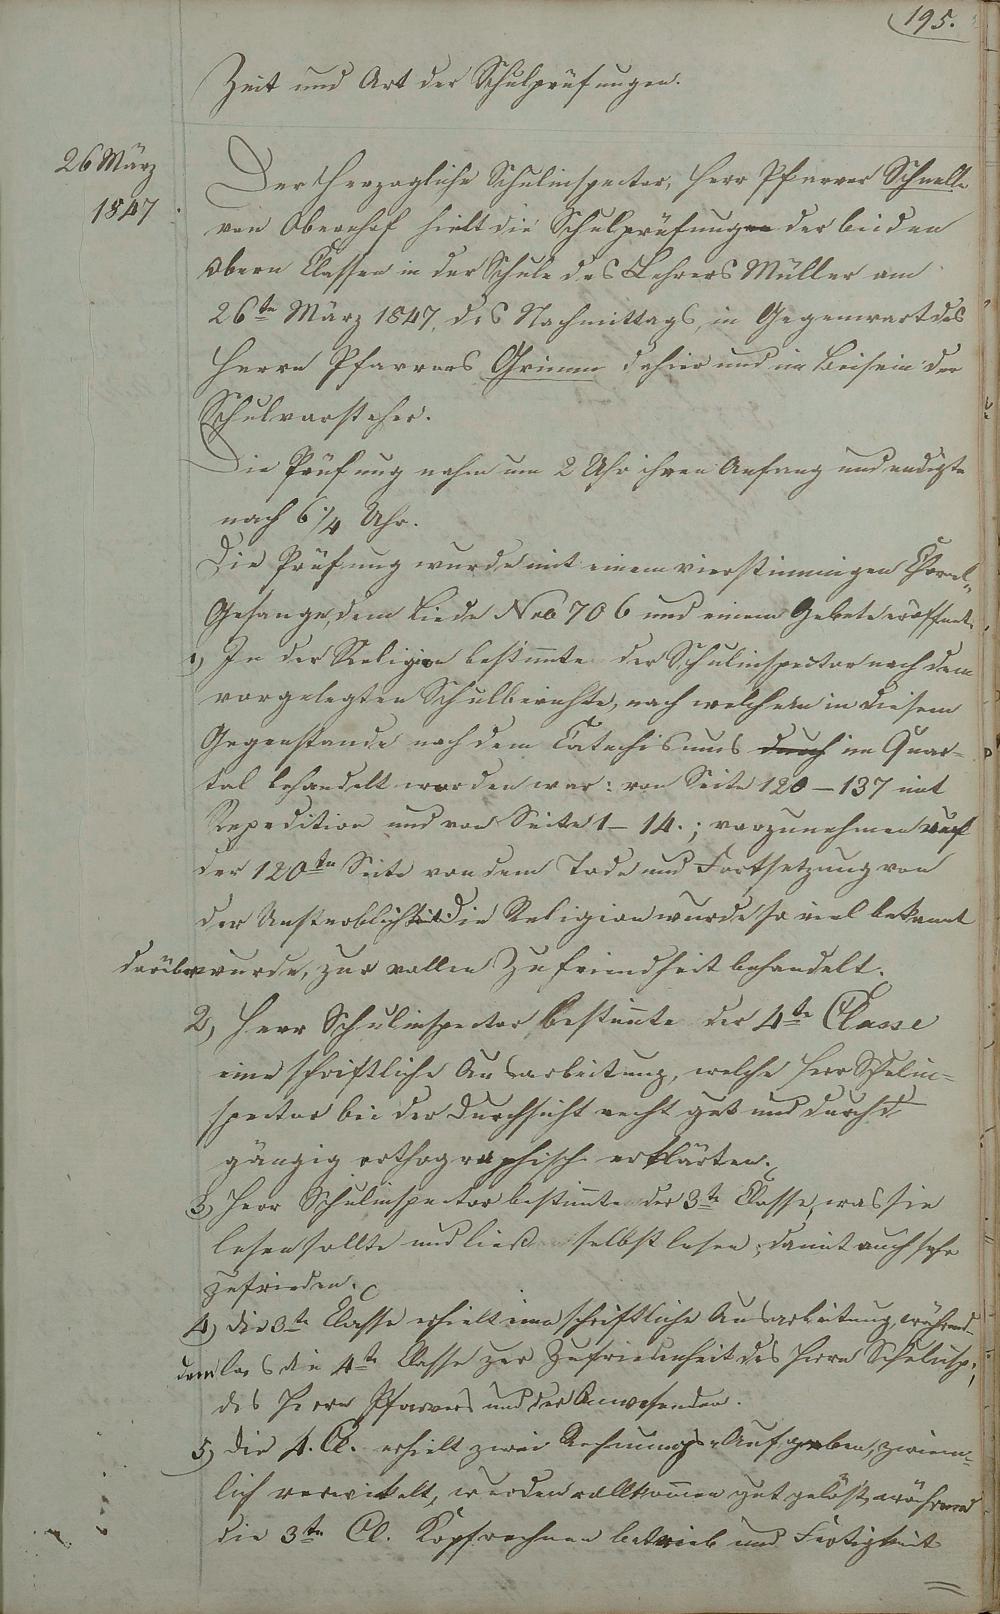 195.
Zeit und Art der Schulprüfungen.
26 März
1847
Der Herzogliche Schulinspector, Herr Pfarrer Schnelle
von Obernhof hielt die Schulprüfungen der beiden
obern Classen in der Schule des Lehrers Müller am
26ten März 1847, des Nachmittags, in Gegenwart des
Herrn Pfarrers Grimm dahier und im Beisein der
Schulvorsteher.
Die Prüfung nahm um 2 Uhr ihren Anfang und endigte
nach 6 1/4 Uhr.
Die Prüfung wurde mit einem vierstimmigen Choral-
Gesange, dem Liede Nro 706 und einem Gebete eröffnet.
1, In der Religion bestimmte der Schulinspector nach dem
vorgelegten Schulberichte, nach welchem in diesem
Gegenstande nach dem Catechismus durch im Quar-
tal behandelt worden war: von Seite 120 – 137 mit
Repedition und von Seite 1 – 14.; vorzunehmen auf
der 120ten Seite von dem Tode und Fortsetzung von
der Unsterblichkeit. Die Religion wurde so viel bekannt
darüber wurde, zur vollen Zufriendheit behandelt.
2, Herr Schulinspector bestimmte der 4ten Classe
eine schriftliche Ausarbeitung, welche Herr Schulin-
spector bei der Durchsicht recht gut und durch-
gängig orthographisch erklärten.
3, Herr Schulinspector bestimmte der 3ten Classe, was sie
lesen sollte und ließ selbst lesen; damit auch sehr
zufrieden.
4, die 3te Classe erhielt eine schriftliche Ausarbeitung, während-
dem las die 4te Classe zur Zufriedenheit des Herrn Schulinsp.,
des Herrn Pfarrers und der Anwesenden.
5, die 4. Cl. erhielt zwei Rechnungs-Aufgaben, ziem-
lich verwickelt, wurden vollkommen gut gelöst, während
die 3te Cl. Kopfrechnen betrieb und Fertigkeit